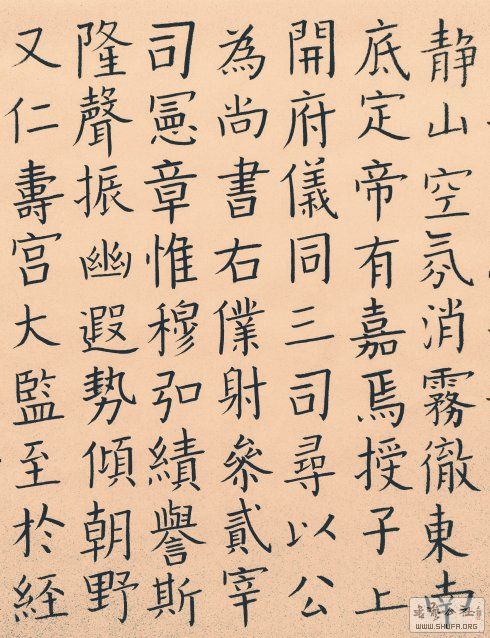 静山空氛消霧徹東南
底定帝有嘉焉授子上
開府儀同三司尋以公
為尚書右僕射參貳宰
司憲章惟穆弘績譽斯
隆聲振幽遐勢傾朝野
又仁壽宮大監至於経
WWW.SHUFA.ORG